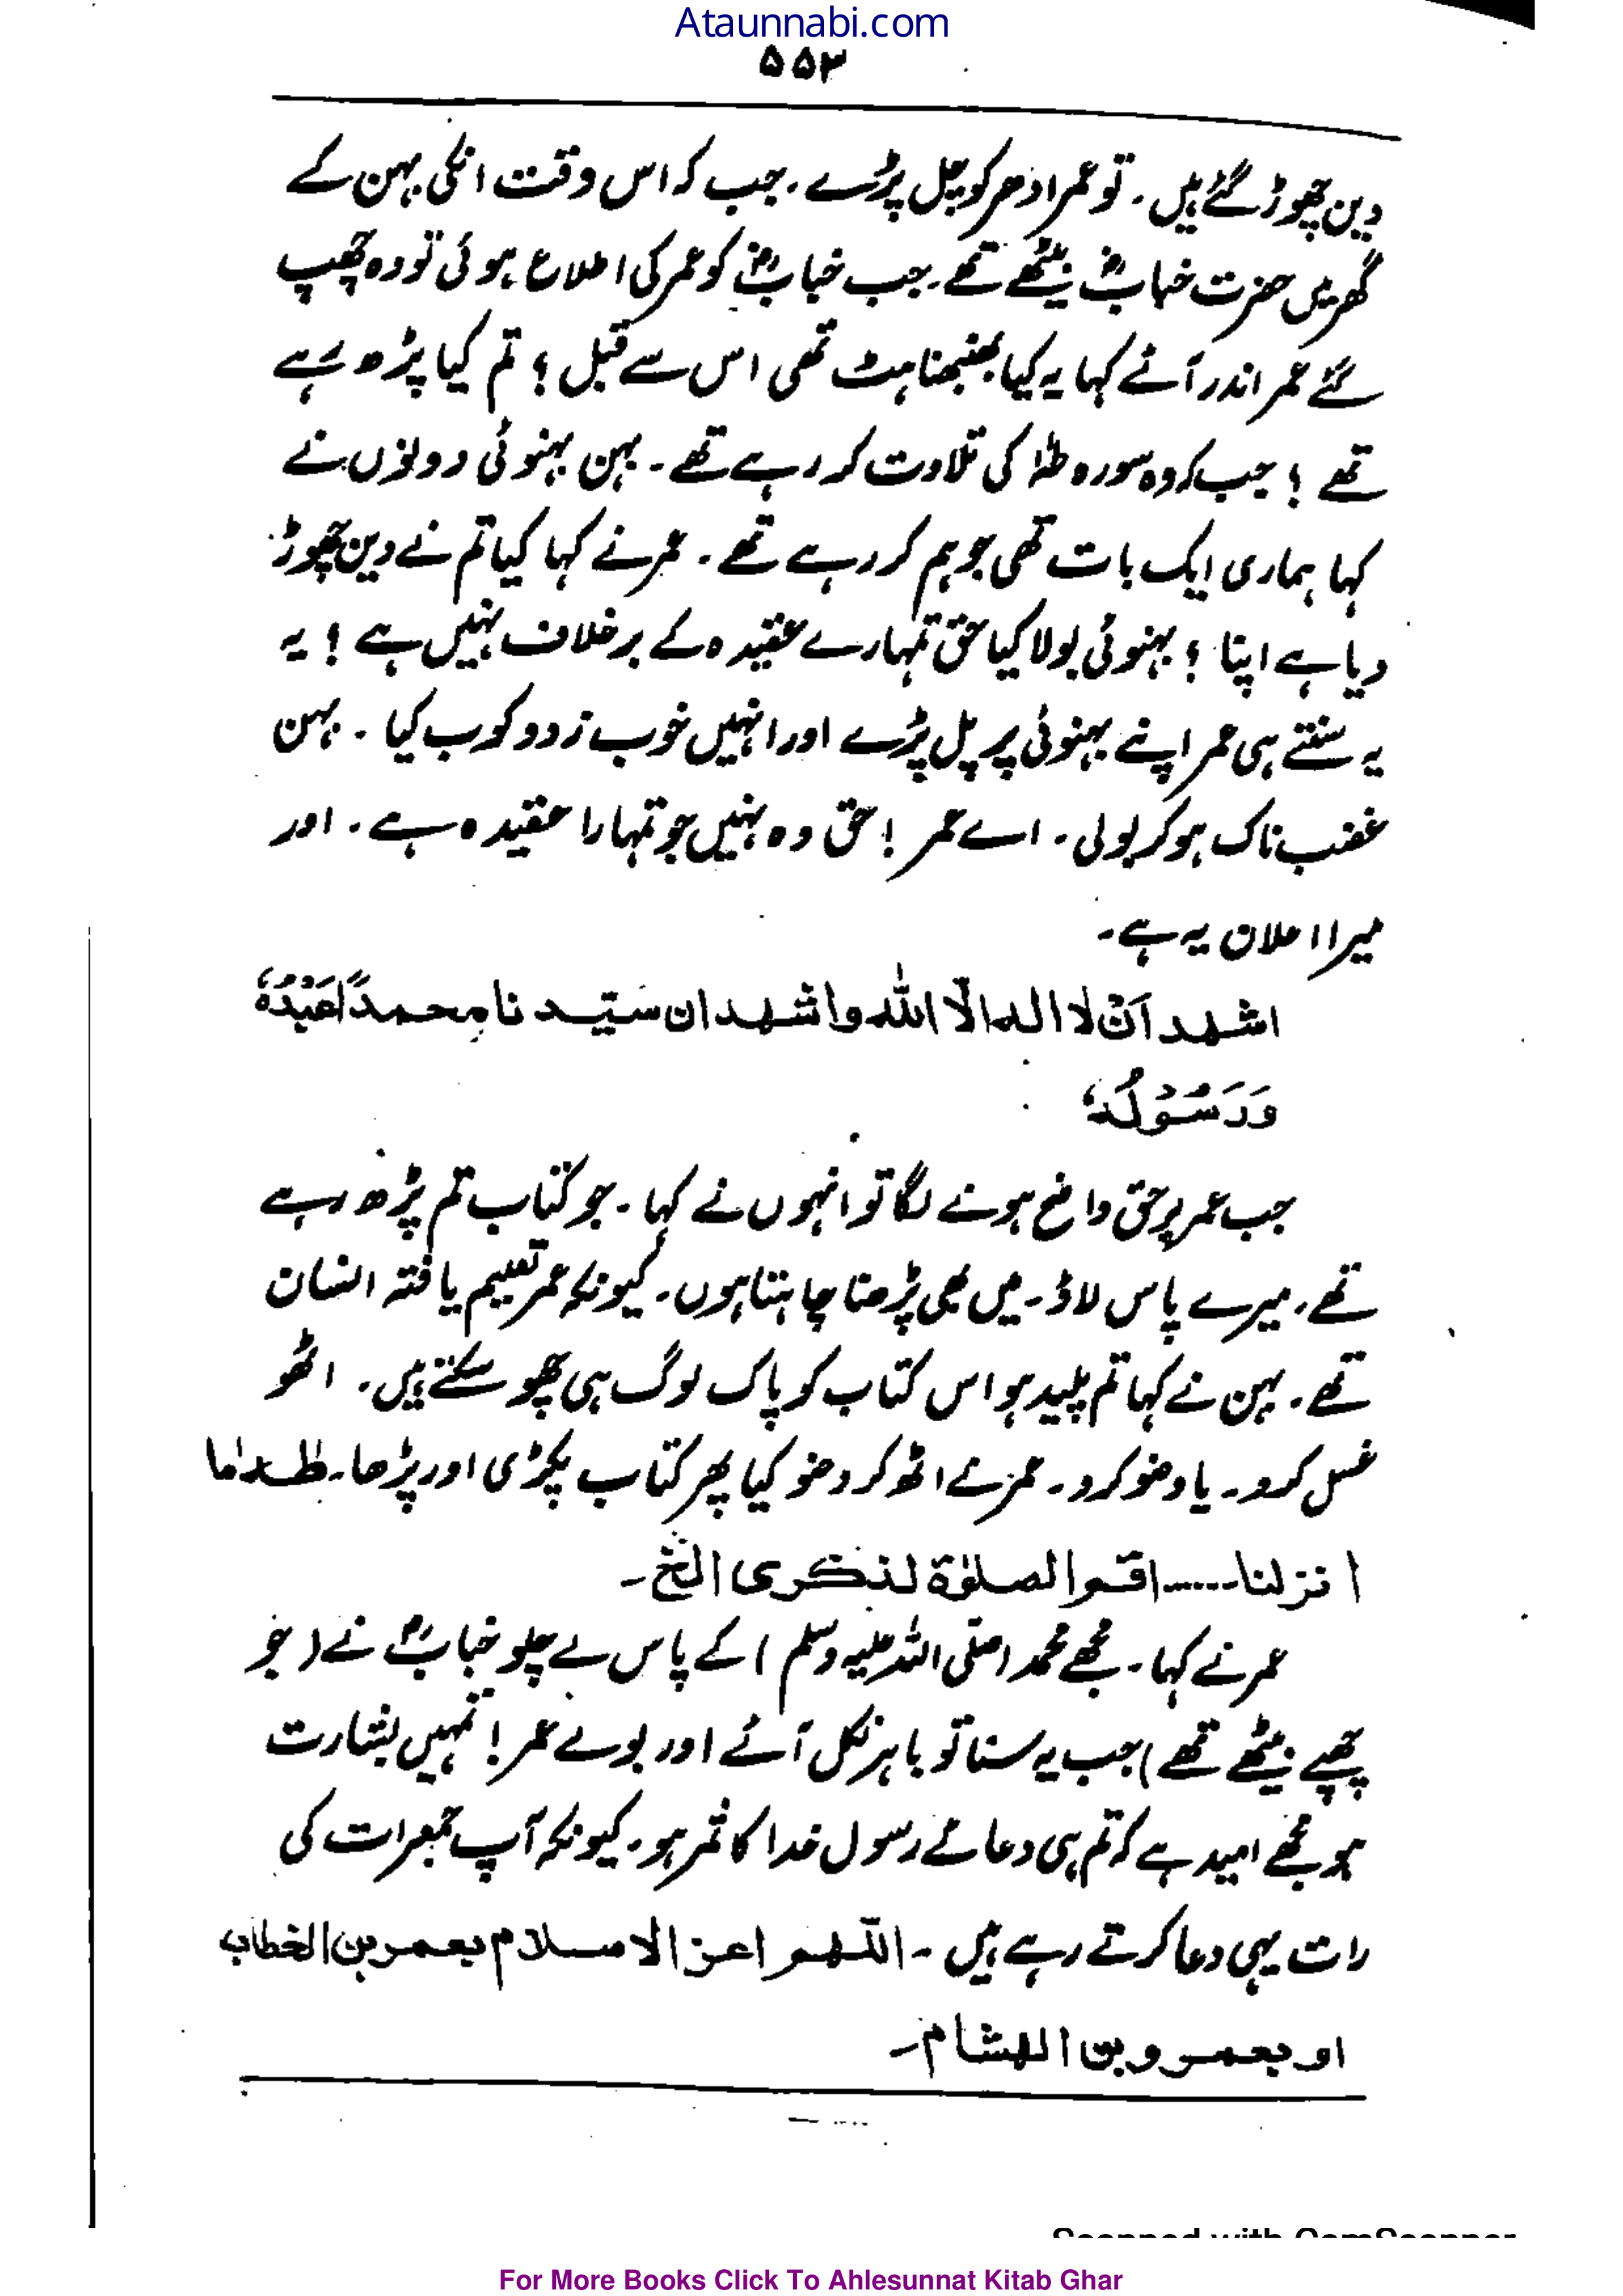 Ataunnabi.com
۵۵۳
دین چھوڑ گئے ہیں۔ تو عمر ادھر کو چل پڑے۔ جب کہ اس وقت انکی بہن کے
گھر میں حضرت خبابؓ بیٹھے تھے۔ جب خبابؓ کو عمر کی اطلاع ہوئی تو وہ چھپ
گئے عمر اندر آئے کہا یہ کیا بھنبھناہٹ تھی اس سے قبل؟ تم کیا پڑھ رہے
تھے؟ جب کہ وہ سورہ طہٰ کی تلاوت کر رہے تھے۔ بہن بہنوئی دونوں نے
کہا ہماری ایک بات تھی جو ہم کر رہے تھے۔ عمر نے کہا کیا تم نے دین چھوڑ
دیا ہے اپنا؟ بہنوئی بولا کیا حق تمہارے عقیدہ کے برخلاف نہیں ہے؟ یہ
یہ سنتے ہی عمر اپنے بہنوئی پر پل پڑے اور انہیں خوب زدوکوب کیا۔ بہن
غضب ناک ہو کر بولی۔ اے عمر! حق وہ نہیں جو تمہارا عقیدہ ہے۔ اور
میرا اعلان یہ ہے۔
اشہد اَنْ لا الہ الّا اللہ واشہد ان سَیّد نا محمداً عَبْدُہٗ
وَرَسُوْلُہٗ
جب عمر پر حق واضح ہونے لگا تو انہوں نے کہا۔ جو کتاب تم پڑھ رہے
تھے۔ میرے پاس لاؤ۔ میں بھی پڑھنا چاہتا ہوں۔ کیونکہ عمر تعلیم یافتہ انسان
تھے۔ بہن نے کہا تم پلید ہو اس کتاب کو پاک لوگ ہی چھو سکتے ہیں۔ اٹھو
غسل کرو۔ یا وضو کرو۔ عمر نے اٹھ کر وضو کیا پھر کتاب پکڑی اور پڑھا۔ طٰہٰ ما
انزلنا......اقم الصلوٰۃ لذکری الخ۔
عمر نے کہا۔ مجھے محمد (صلی اللہ علیہ وسلم) کے پاس لے چلو خبابؓ نے (جو
چھپے بیٹھے تھے) جب یہ سنا تو باہر نکل آئے اور بولے عمر! تمہیں بشارت
ہو مجھے امید ہے کہ تم ہی دعائے رسول خدا کا ثمر ہو۔ کیونکہ آپ جمعرات کی
رات یہی دعا کرتے رہے ہیں۔ اللّٰہم اعز الاسلام بعمر بن الخطاب
او بعمرو بن الہشام۔
Scanned with CamScanner
For More Books Click To Ahlesunnat Kitab Ghar